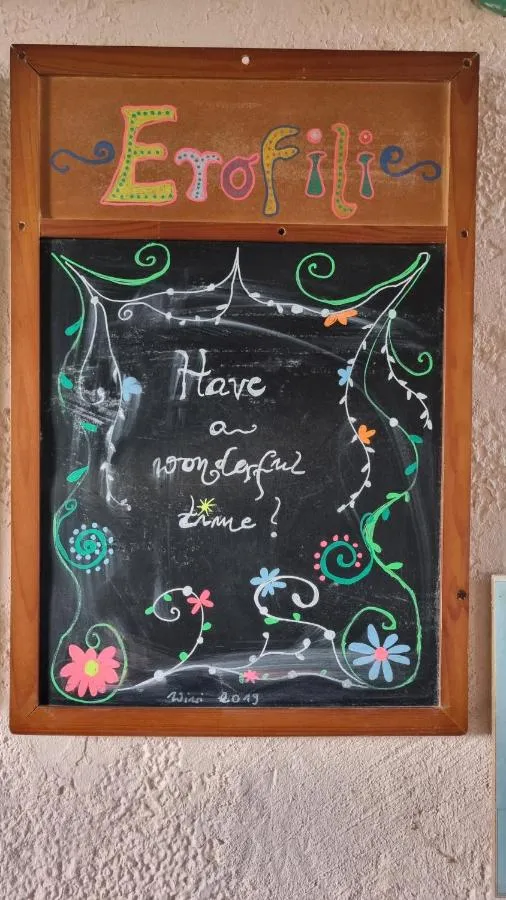 Erofili
Have
a
wonderful
time!
Wivi 2019